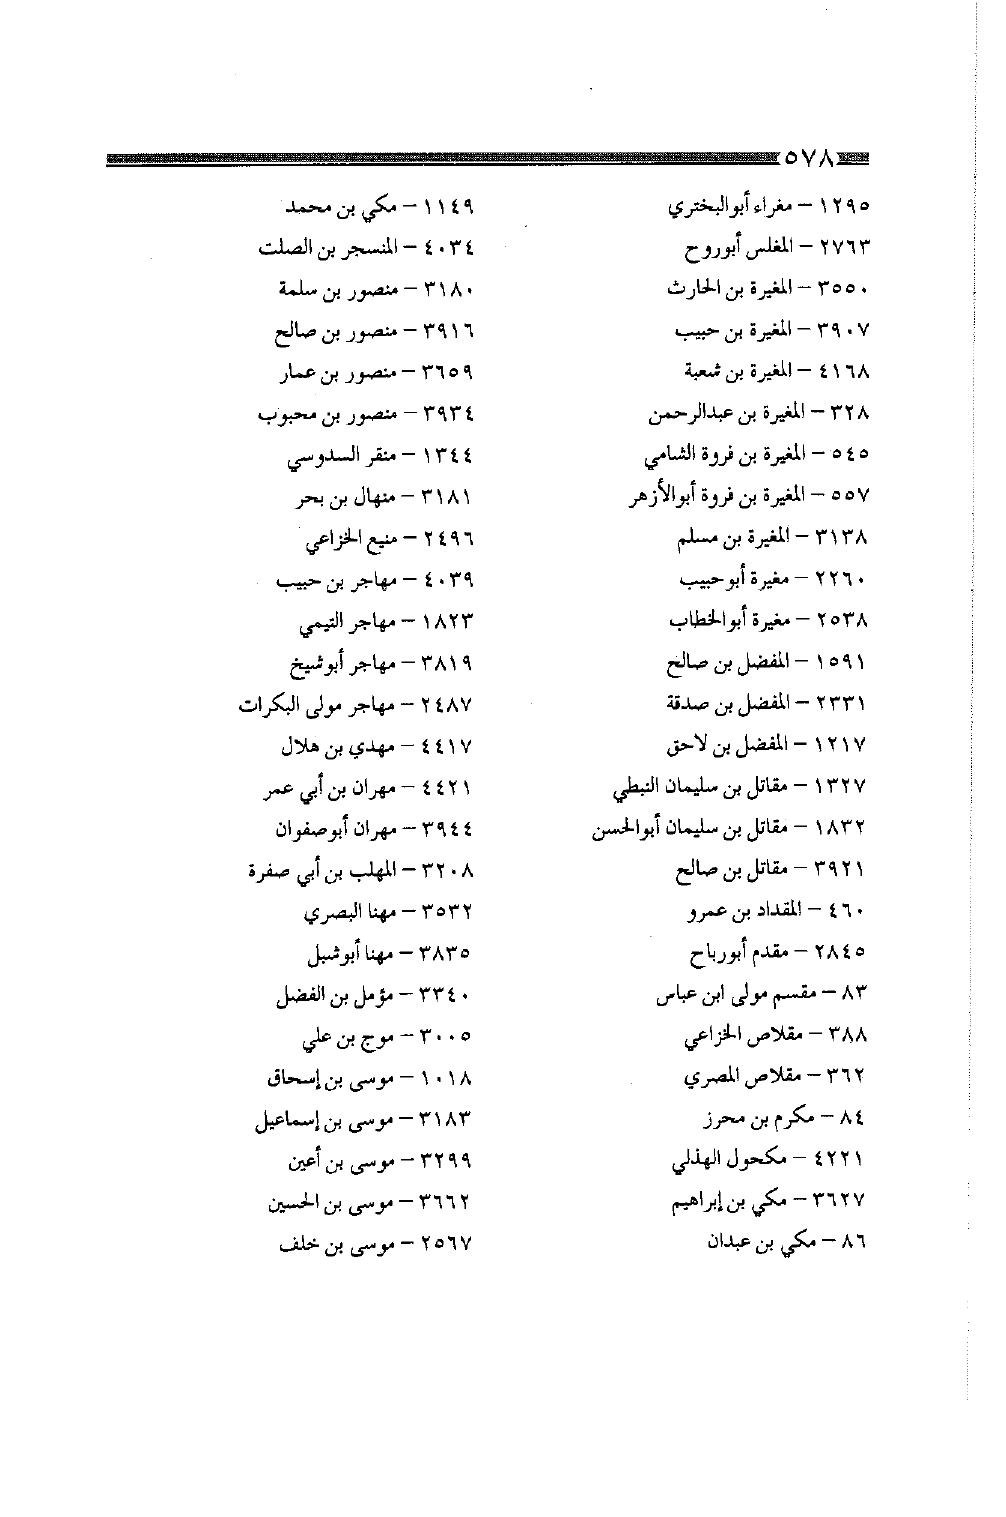 ٥٧٨
١٢٩٥ – مغراء أبوالبختري
٢٧٦٣ – المغلس أبوروح
٣٥٥٠ – المغيرة بن الحارث
٣٩٠٧ – المغيرة بن حبيب
٤١٦٨ – المغيرة بن شعبة
٣٢٨ – المغيرة بن عبدالرحمن
٥٤٥ – المغيرة بن فروة الشامي
٥٥٧ – المغيرة بن فروة أبوالأزهر
٣١٣٨ – المغيرة بن مسلم
٢٢٦٠ – مغيرة أبوحبيب
٢٥٣٨ – مغيرة أبوالخطاب
١٥٩١ – المفضل بن صالح
٢٣٣١ – المفضل بن صدقة
١٢١٧ – المفضل بن لاحق
١٣٢٧ – مقاتل بن سليمان النبطي
١٨٣٢ – مقاتل بن سليمان أبوالحسن
٣٩٢١ – مقاتل بن صالح
٤٦٠ – المقداد بن عمرو
٢٨٤٥ – مقدم أبورباح
٨٣ – مقسم مولى ابن عباس
٣٨٨ – مقلاص الخزاعي
٣٦٢ – مقلاص المصري
٨٤ – مكرم بن محرز
٤٢٢١ – مكحول الهذلي
٣٦٢٧ – مكي بن إبراهيم
٨٦ – مكي بن عبدان
١١٤٩ – مكي بن محمد
٤٠٣٤ – المنسجر بن الصلت
٣١٨٠ – منصور بن سلمة
٣٩١٦ – منصور بن صالح
٣٦٥٩ – منصور بن عمار
٣٩٣٤ – منصور بن محبوب
١٣٤٤ – منقر السدوسي
٣١٨١ – منهال بن بحر
٢٤٩٦ – منيع الخزاعي
٤٠٣٩ – مهاجر بن حبيب
١٨٢٣ – مهاجر التيمي
٣٨١٩ – مهاجر أبوشيخ
٢٤٨٧ – مهاجر مولى البكرات
٤٤١٧ – مهدي بن هلال
٤٤٢١ – مهران بن أبي عمر
٣٩٤٤ – مهران أبوصفوان
٣٢٠٨ – المهلب بن أبي صفرة
٣٥٣٢ – مهنا البصري
٣٨٣٥ – مهنا أبوشبل
٣٣٤٠ – مؤمل بن الفضل
٣٠٠٥ – موج بن علي
١٠١٨ – موسى بن إسحاق
٣١٨٣ – موسى بن إسماعيل
٣٢٩٩ – موسى بن أعين
٣٦٦٢ – موسى بن الحسين
٢٥٦٧ – موسى بن خلف